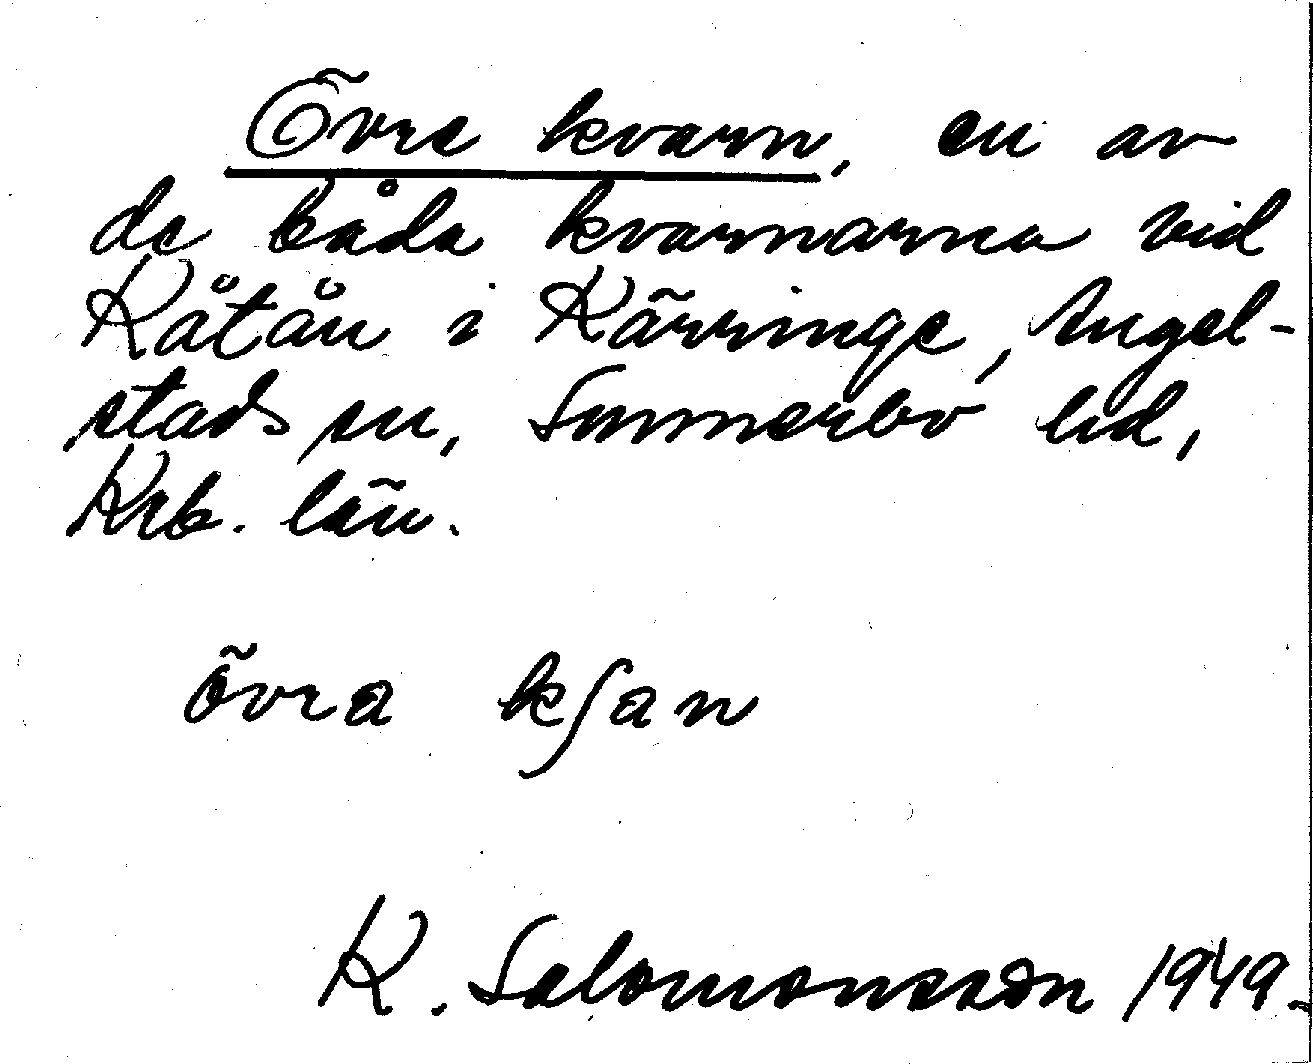 Övre kvarn, en av
de båda kvarnarna vid
Kåtån i Kärringe, Angel-
stads sn, Sunnerbo hd,
Krb. län.
övra kʃan
K. Salomonsson 1949.